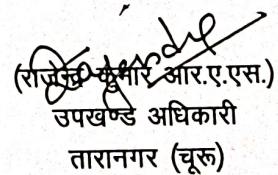 (राजेन्द्र कुमार आर.ए.एस.)
उपखण्ड अधिकारी
तारानगर (चूरू)